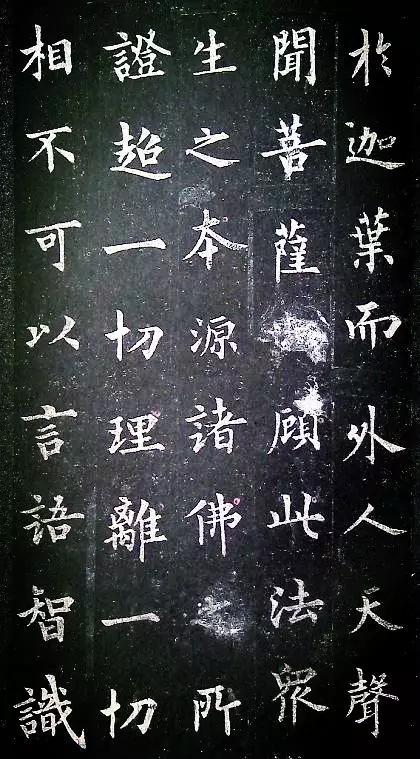 於迦葉而外人天聲
聞菩薩顧此法眾
生之本源諸佛之所
證超一切理離一切
相不可以言語智識